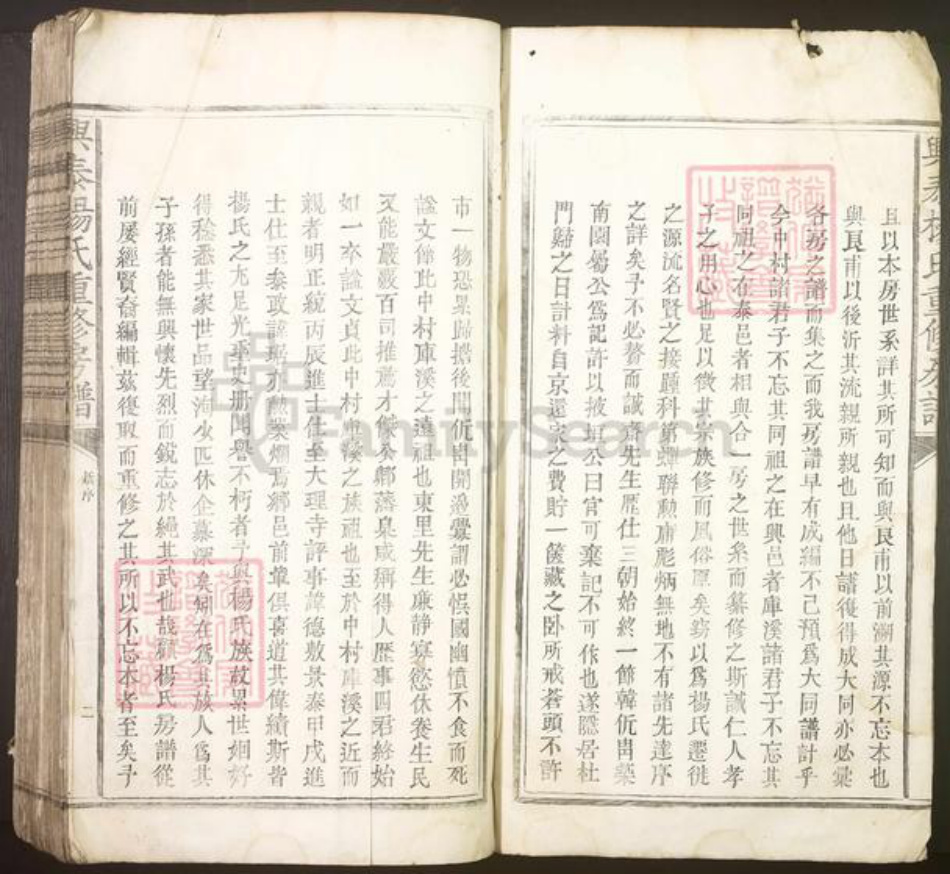 且以本房世系詳其所可知而與艮甫以前溯其源不忘本也
與艮甫以後沂其流親所親也且他日譜復得成大同亦必彙
各房之譜而集之而我房譜早有成編不已預爲大同譜計乎
今中村諸君子不忘其同祖之在興邑者庫溪諸君子不忘其
同祖之在泰邑者相與合一房之世系而纂修之斯誠仁人孝
子之用心也足以徵其宗族修而風俗厚矣竊以爲楊氏遷徙
之源流名賢之接踵科第蟬聯勳庸彪炳無地不有諸先達序
之詳矣予不必贅而誠齋先生歷仕三朝始終一節韓侂冑築
南園屬公爲記許以掖垣公曰官可棄記不可作也遂隱居杜
門歸之日計料自京還家之費貯一篋藏之卧所戒蒼頭不許
市一物恐累歸擔後聞侂冑開邊釁謂必悞國幽憤不食而死
謚文節此中村庫溪之遠祖也東里先生廉靜寡慾休養生民
又能嚴覈百司推薦才修公鄉藩臬咸稱得人歷事四君終始
如一卒謚文貞此中村庫溪之族祖也至於中村庫溪之近而
親者明正統丙辰進士仕至大理寺評事諱德敷景泰甲戌進
士仕至叅政諱琚亦勲業爛焉鄉邑前輩俱喜道其偉績斯皆
楊氏之尤足光重史册聞譽不朽者予與楊氏族故累世姻好
得稔悉其家世品望洵少匹休企慕深矣矧在爲其族人爲其
子孫者能無興懷先烈而銳志於繩其武也哉顧楊氏房譜從
前屢經賢裔編輯茲復取而重修之其所以不忘本者至矣予
興泰楊氏重修房譜
新序
二
興泰楊氏重修房譜
FamilySearch